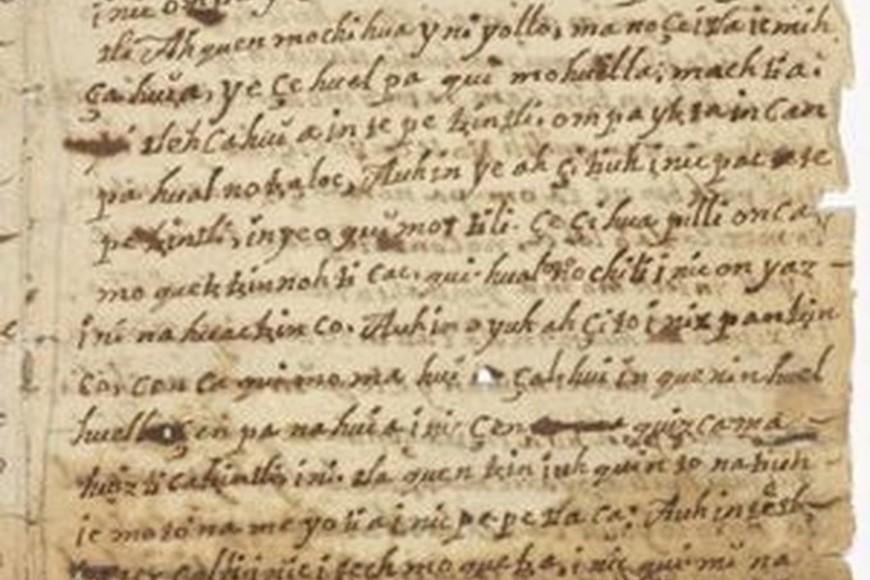 inic omp
tli Ah quen mochihua y ni yollo, ma noçeitta ic mih
ça huia, ye çe huel pa qui mohuilla; mach tia.
tleh ca huia in te pe tzintli. ompa yttia in can
pa hual notzaloc, Auh in ye ah çi tiuh inic pac te
pe tzintli, in yeo qui mot tili. çe çihua pilli onca
mo quetztzinnoh ti cac. qui hual mochili inic on yaz -
i ni nahuactzin co. Auh in o yuh ah çi to i nix pantzin
co, cen ca qui mo ma hui çalhui in quenin huel
huell çen pa nahuia i nic çen quizcama -
huiz ti catzintli, ini. tla quen tzin iuh quin to natiuh -
ic moto na me yo tia i nic pe pe tla ca; Auh in tetl
i nic i tech mo quetza, i nic qui mi na